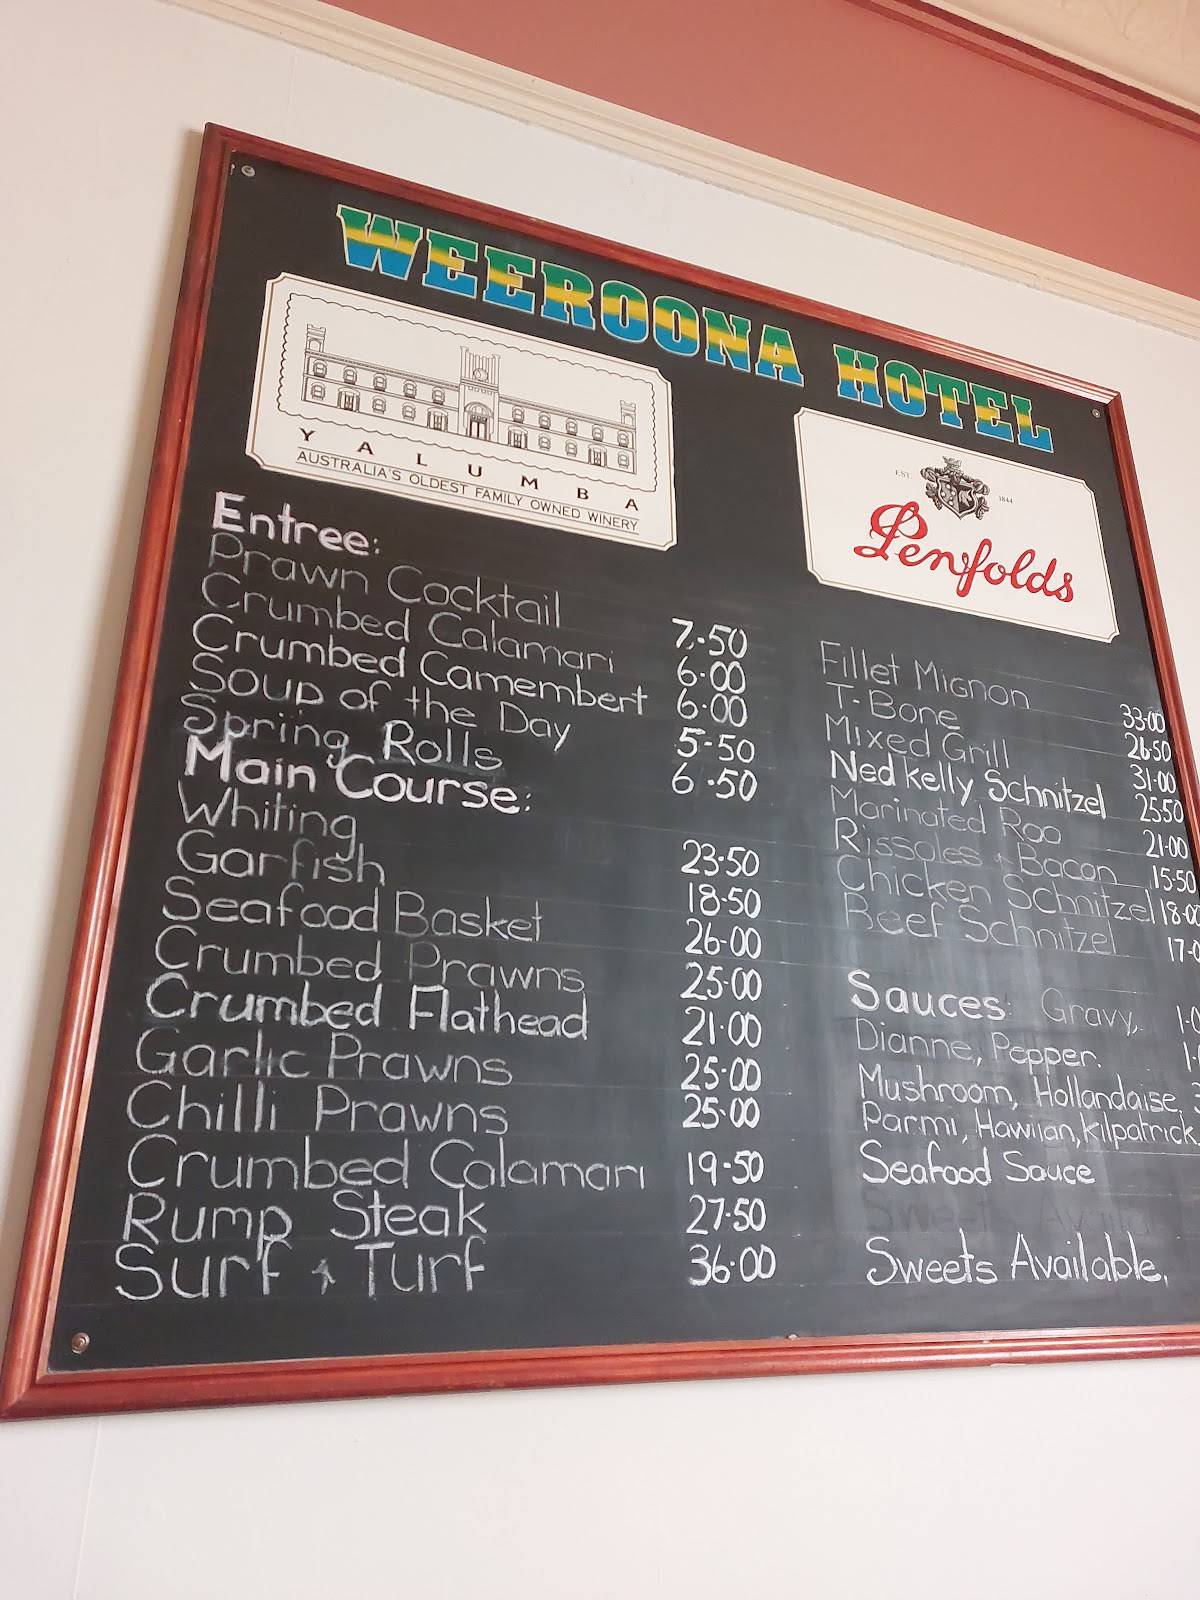 WEEROONA HOTEL
YALUMBA
AUSTRALIA'S OLDEST FAMILY OWNED WINERY
EST. 1844
Penfolds
Entree:
Prawn Cocktail 7.50
Crumbed Calamari 6.00
Crumbed Camembert 6.00
Soup of the Day 5.50
Spring Rolls 6.50
Main Course:
Whiting 23.50
Garfish 18.50
Seafood Basket 26.00
Crumbed Prawns 25.00
Crumbed Flathead 21.00
Garlic Prawns 25.00
Chilli Prawns 25.00
Crumbed Calamari 19.50
Rump Steak 27.50
Surf & Turf 36.00
Fillet Mignon 33.00
T-Bone 26.50
Mixed Grill 31.00
Ned Kelly Schnitzel 25.50
Marinated Roo 21.00
Rissoles & Bacon 15.50
Chicken Schnitzel 18.00
Beef Schnitzel 17.0
Sauces: Gravy,
Dianne, Pepper.
Mushroom, Hollandaise,
Parmi, Hawiian, Kilpatrick
Seafood Sauce
Sweets Available.